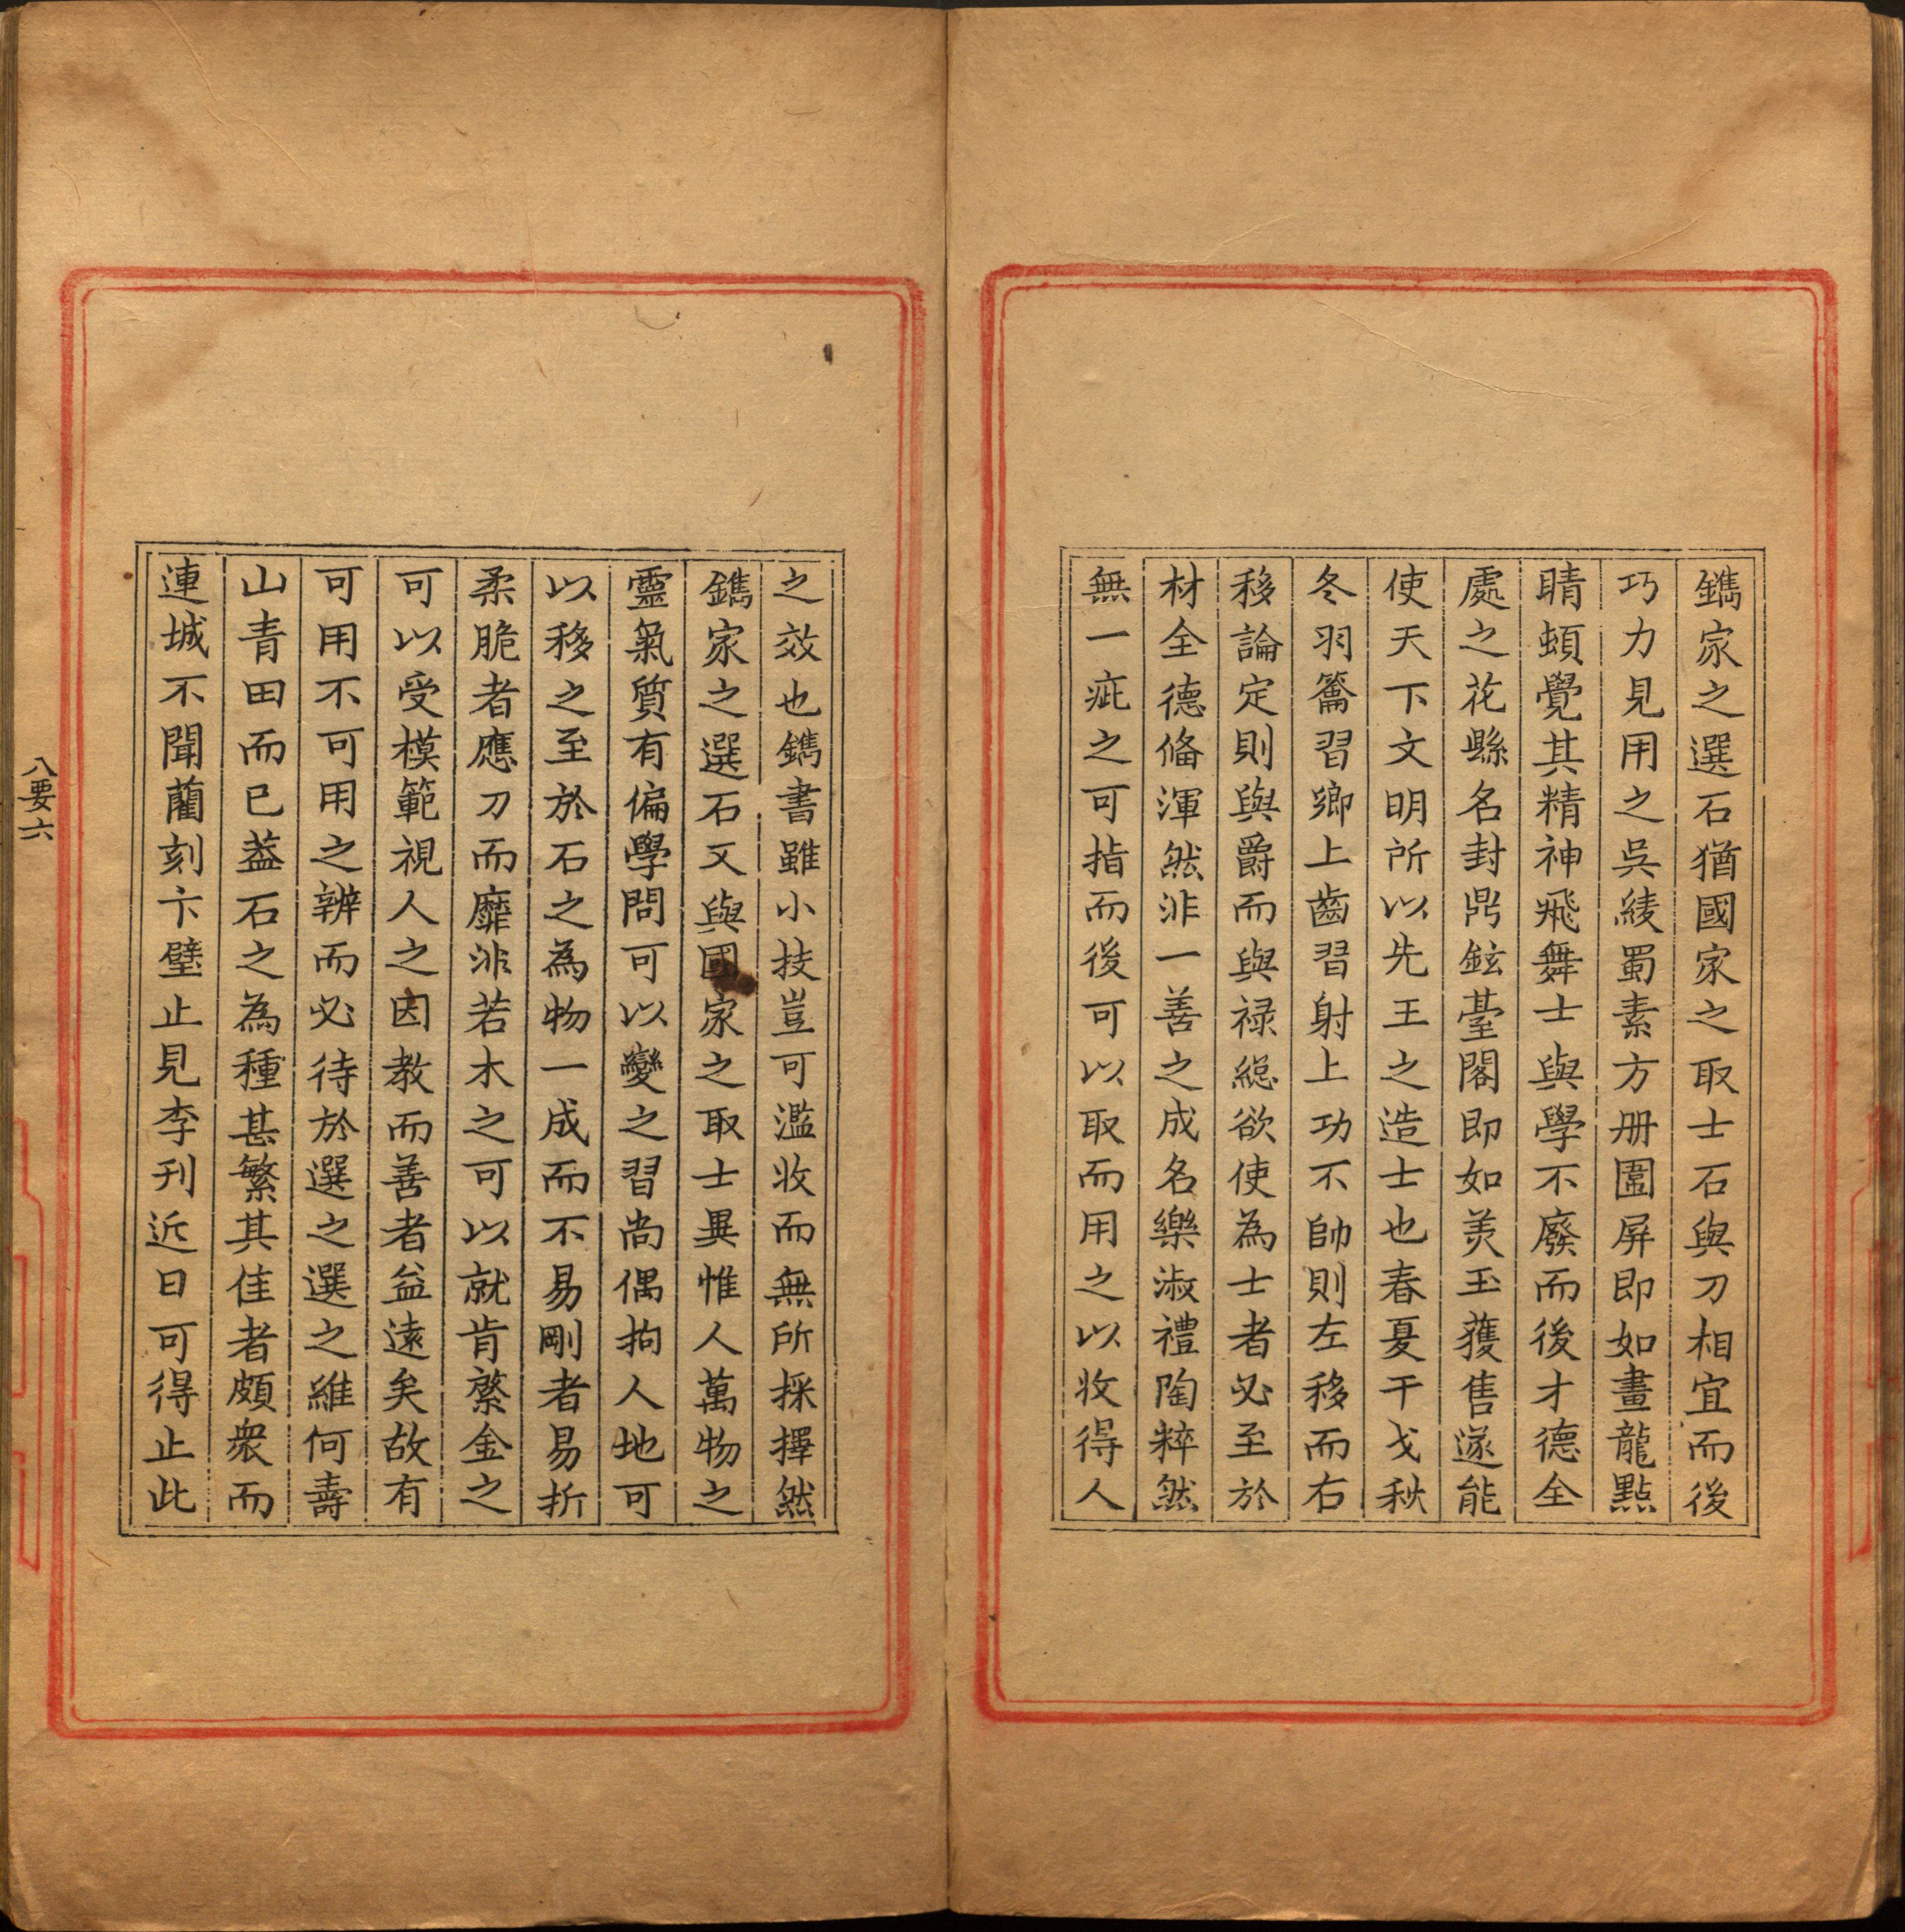 鐫家之選石猶國家之取士石與刀相宜而後
巧力見用之吳綾蜀素方册圍屏即如畫龍點
睛頓覺其精神飛舞士與學不廢而後才德全
處之花縣名封鼎鉉臺閣即如羙玉獲售遂能
使天下文明所以先王之造士也春夏干戈秋
冬羽籥習鄉上齒習射上功不帥則左移而右
移論定則與爵而與禄緫欲使為士者必至於
材全德俻渾然非一善之成名樂淑禮陶粹然
無一疵之可指而後可以取而用之以收得人
之效也鐫書雖小技豈可濫收而無所採擇然
鐫家之選石又與國家之取士異惟人萬物之
靈氣質有偏學問可以變之習尚偶拘人地可
以移之至於石之為物一成而不易剛者易折
柔脆者應刀而靡非若木之可以就肯綮金之
可以受模範視人之因教而善者益遠矣故有
可用不可用之辨而必待於選之選之維何壽
山青田而已葢石之為種甚繁其佳者頗衆而
連城不聞藺刻卞璧止見李刊近日可得止此
八要六